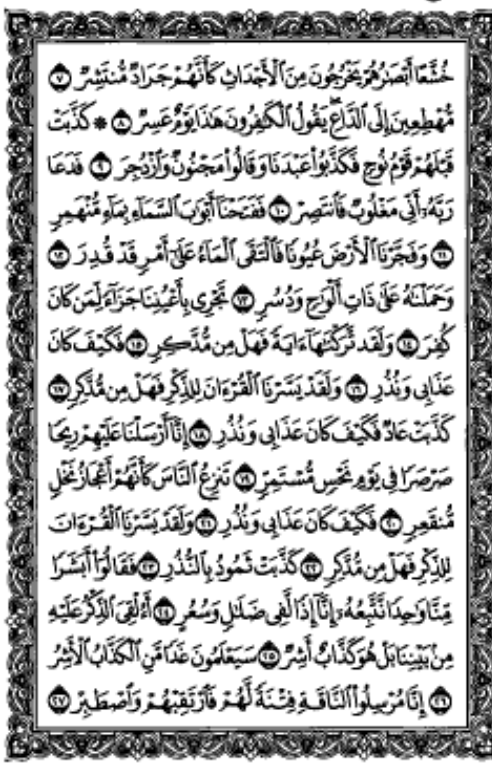 خُشَّعًا أَبْصَٰرُهُمْ يَخْرُجُونَ مِنَ ٱلْأَجْدَاثِ كَأَنَّهُمْ جَرَادٌ مُّنتَشِرٌ ٧
مُّهْطِعِينَ إِلَى ٱلدَّاعِ يَقُولُ ٱلْكَٰفِرُونَ هَٰذَا يَوْمٌ عَسِرٌ ٨ ۞ كَذَّبَتْ
قَبْلَهُمْ قَوْمُ نُوحٍ فَكَذَّبُوا۟ عَبْدَنَا وَقَالُوا۟ مَجْنُونٌ وَٱزْدُجِرَ ٩ فَدَعَا
رَبَّهُۥٓ أَنِّى مَغْلُوبٌ فَٱنتَصِرْ ١٠ فَفَتَحْنَآ أَبْوَٰبَ ٱلسَّمَآءِ بِمَآءٍ مُّنْهَمِرٍ
١١ وَفَجَّرْنَا ٱلْأَرْضَ عُيُونًا فَٱلْتَقَى ٱلْمَآءُ عَلَىٰٓ أَمْرٍ قَدْ قُدِرَ ١٢
وَحَمَلْنَٰهُ عَلَىٰ ذَاتِ أَلْوَٰحٍ وَدُسُرٍ ١٣ تَجْرِى بِأَعْيُنِنَا جَزَآءً لِّمَن كَانَ
كُفِرَ ١٤ وَلَقَد تَّرَكْنَٰهَآ ءَايَةً فَهَلْ مِن مُّدَّكِرٍ ١٥ فَكَيْفَ كَانَ
عَذَابِى وَنُذُرِ ١٦ وَلَقَدْ يَسَّرْنَا ٱلْقُرْءَانَ لِلذِّكْرِ فَهَلْ مِن مُّدَّكِرٍ ١٧
كَذَّبَتْ عَادٌ فَكَيْفَ كَانَ عَذَابِى وَنُذُرِ ١٨ إِنَّآ أَرْسَلْنَا عَلَيْهِمْ رِيحًا
صَرْصَرًا فِى يَوْمِ نَحْسٍ مُّسْتَمِرٍّ ١٩ تَنزِعُ ٱلنَّاسَ كَأَنَّهُمْ أَعْجَازُ نَخْلٍ
مُّنقَعِرٍ ٢٠ فَكَيْفَ كَانَ عَذَابِى وَنُذُرِ ٢١ وَلَقَدْ يَسَّرْنَا ٱلْقُرْءَانَ
لِلذِّكْرِ فَهَلْ مِن مُّدَّكِرٍ ٢٢ كَذَّبَتْ ثَمُودُ بِٱلنُّذُرِ ٢٣ فَقَالُوٓا۟ أَبَشَرًا
مِّنَّا وَٰحِدًا نَّتَّبِعُهُۥٓ إِنَّآ إِذًا لَّفِى ضَلَٰلٍ وَسُعُرٍ ٢٤ أَءُلْقِىَ ٱلذِّكْرُ عَلَيْهِ
مِنۢ بَيْنِنَا بَلْ هُوَ كَذَّابٌ أَشِرٌ ٢٥ سَيَعْلَمُونَ غَدًا مَّنِ ٱلْكَذَّابُ ٱلْأَشِرُ
٢٦ إِنَّا مُرْسِلُوا۟ ٱلنَّاقَةِ فِتْنَةً لَّهُمْ فَٱرْتَقِبْهُمْ وَٱصْطَبِرْ ٢٧